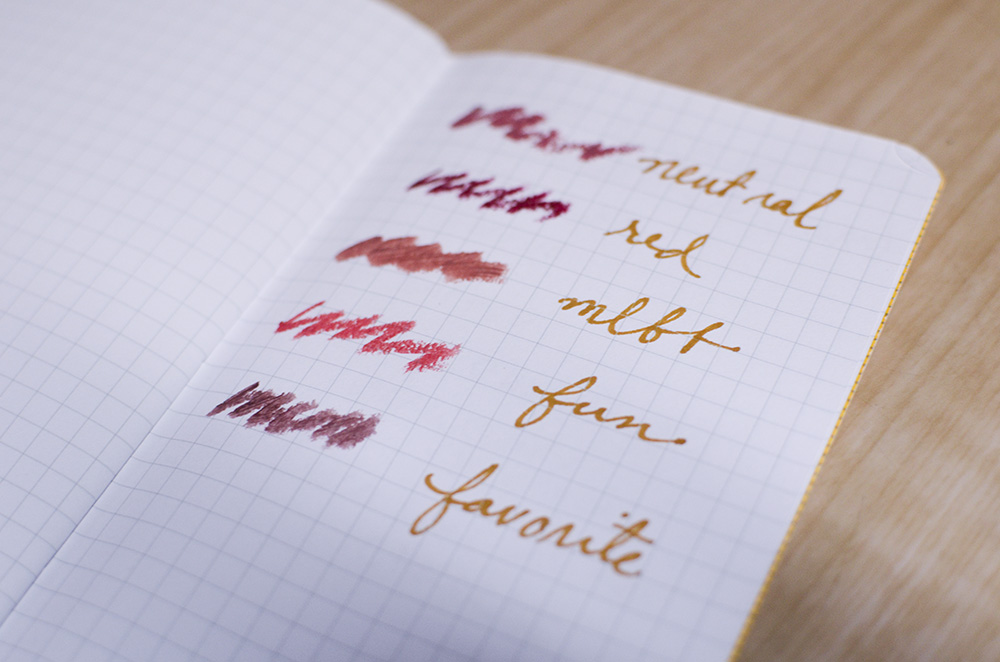 neutral
red
mlbb
fun
favorite